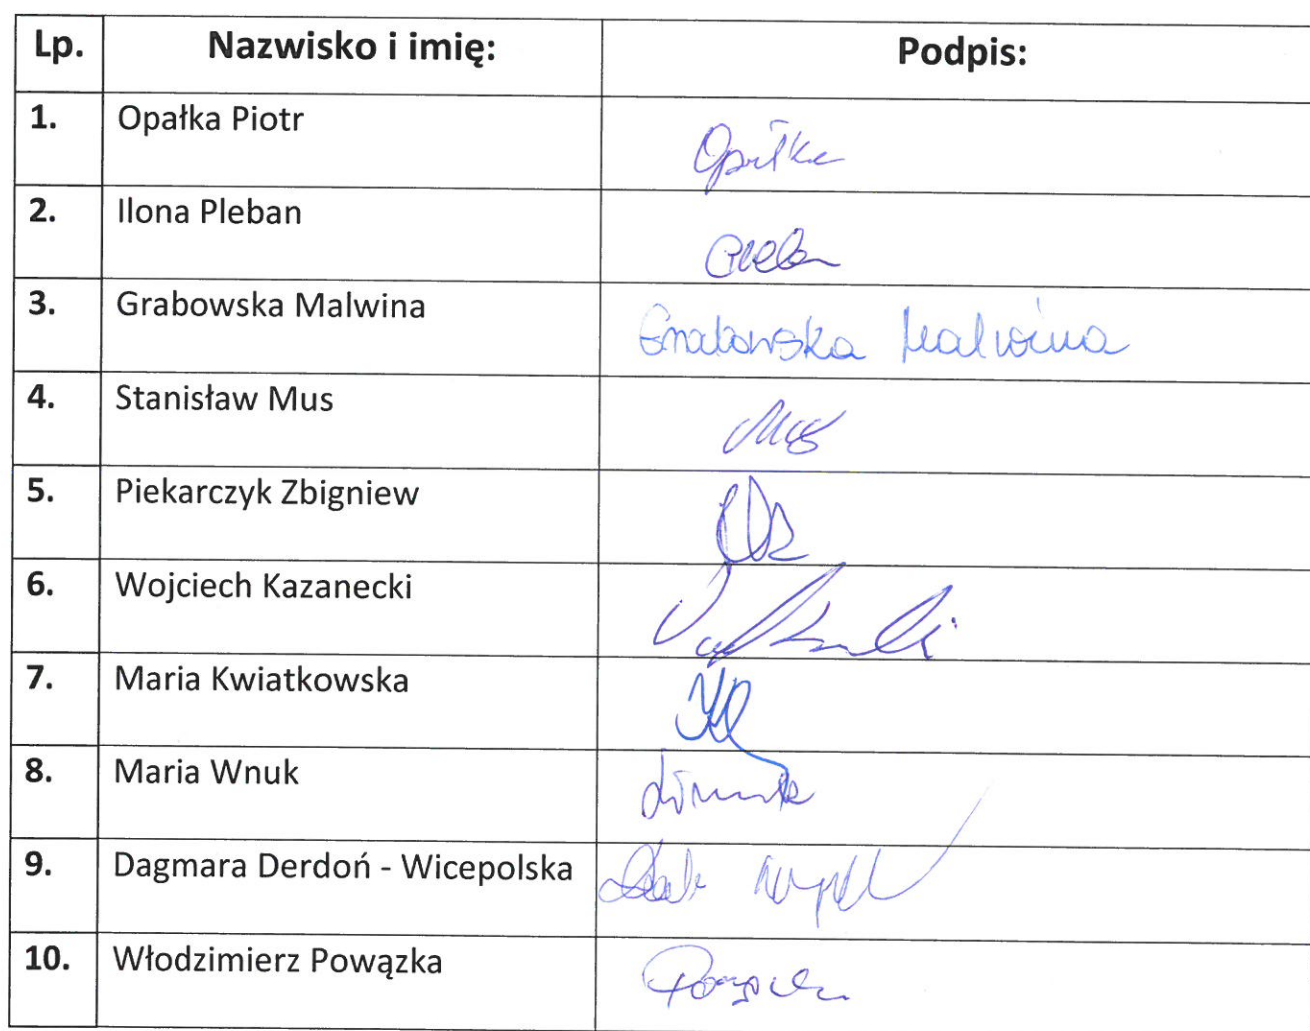 Lp. Nazwisko i imię: Podpis:
1. Opałka Piotr Opałka
2. Ilona Pleban
3. Grabowska Malwina Grabowska Malwina
4. Stanisław Mus Mus
5. Piekarczyk Zbigniew
6. Wojciech Kazanecki
7. Maria Kwiatkowska
8. Maria Wnuk
9. Dagmara Derdoń - Wicepolska
10. Włodzimierz Powązka